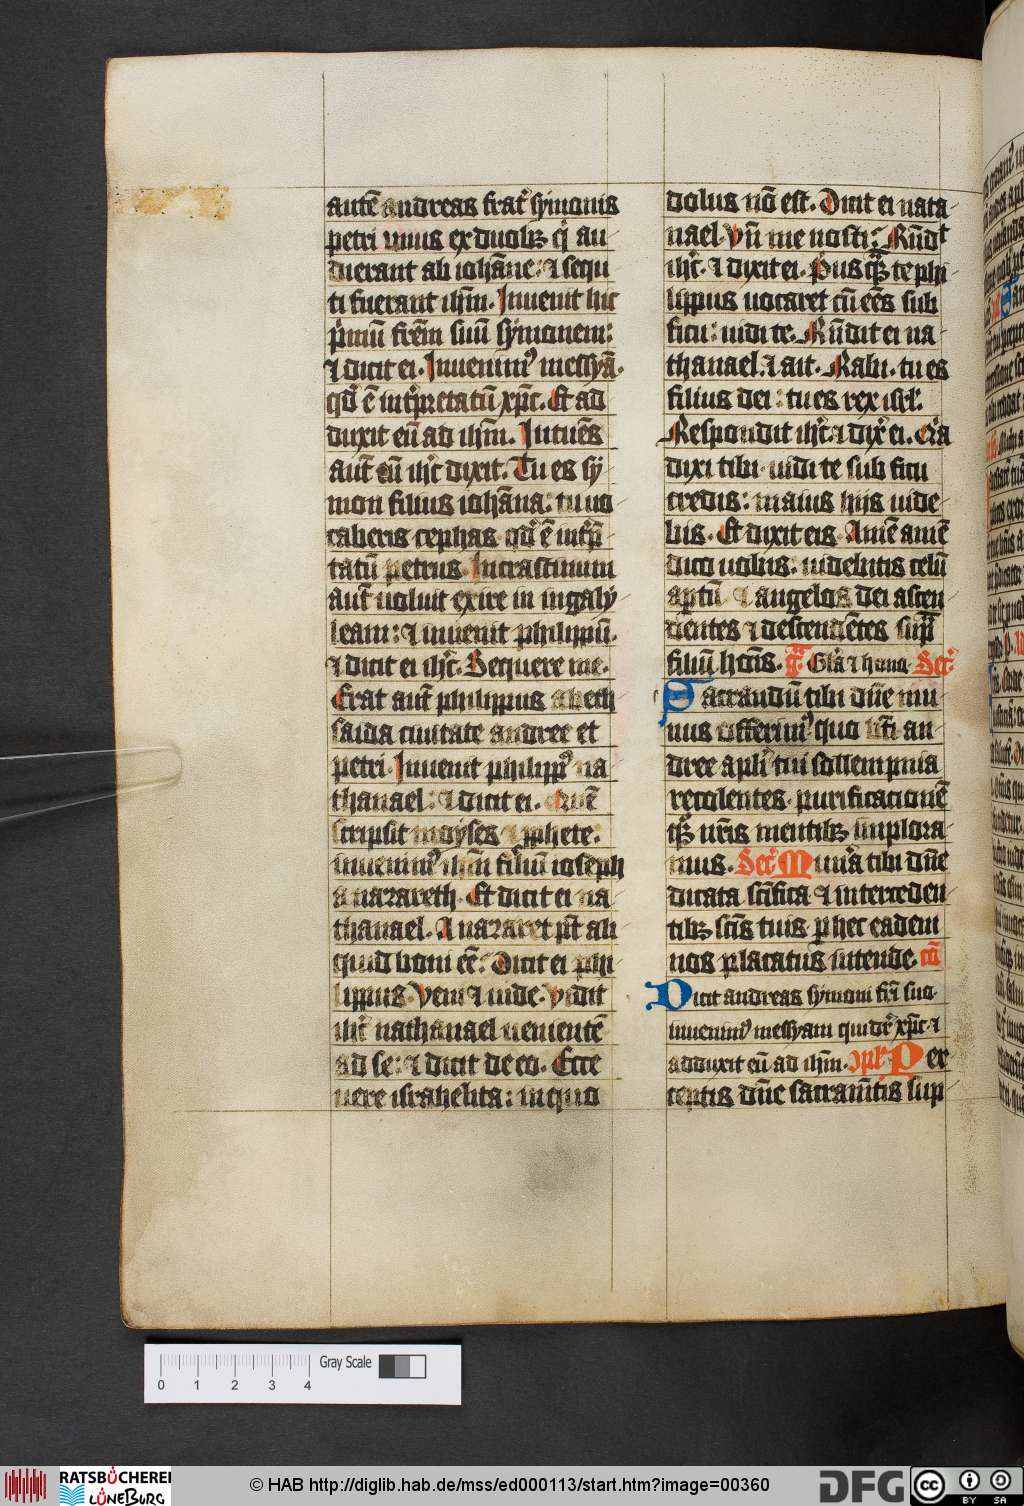 autē andreas frat᷒ symonis
petri vnus ex duobꝫ qͥ au
dierant ab iohāne: ⁊ sequ
ti fuerant ihm̄. Inuenit hic
pͥmū frēm suū symonem:
⁊ dicit ei. Inuenimꝰ messyā.
qd̕ ē int᷒pretatū xp̄c. Et ad
duxit eū ad ihm̄. Intuēs
aut̄ eū ihc̄ dixit. Tu es sy
mon filius iohāna: tu uo
caberis cephas. qd̕ ē int᷒p̄
tatū petrus. In crastinum
aut̄ uoluit exire in ingaly
leam: ⁊ inuenit philippū.
⁊ dicit ei ihc̄. Sequere me.
Erat aut̄ philippus a beth
saida ciuitate andree et
petri. Inuenit philippꝰ na
thanael: ⁊ dicit ei. Quē
scripsit moyses ⁊ ꝓphete:
inuenimꝰ ihm̄ filiū ioseph
a nazareth. Et dicit ei na
thanael. A nazaret pt̄ ali
quid boni eē: Dicit ei phi
lippus. Veni ⁊ uide. Vidit
ihc̄ nathanael uenientē
ad se: ⁊ dicit de eo. Ecce
uere israhelita: in quo
dolus nō est. Dicit ei nata
nael. Vn̄ me nosti: Rn̄dt
ihc̄. ⁊ dixit ei. Pͥusqᷓꝫ te phi
lippus uocaret cū eēs sub
ficu: uidi te. Rn̄dit ei na
thanael. ⁊ ait. Rabi. tu es
filius dei: tu es rex isrl̕.
Respondit ihc̄ ⁊ dix᷒ ei. Qͥa
dixi tibi. uidi te sub ficu
credis: maius hijs uide
bis. Et dixit eis. Amē amē
dico uobis: uidebitis celū
aptū. ⁊ angelos dei ascen
dentes ⁊ descendētes sup̄
filiū hoīs. Gl̕a ⁊ hono. Secr̕
Sacrandū tibi dn̄e mu
nus offerimꝰ quo bt̄i an
dree apl̕i tui sollempnia
recolentes. purificacionē
qꝫ nr̄is mentibꝫ implora
mus. Secr̕ Munᷓa tibi dn̄e
dicata sc̄ifica ⁊ interceden
tibꝫ sc̄is tuis. ꝑ hec eadem
nos placatus intende. cō
Dicit andreas symoni fr̄i suo.
inuenimꝰ messyam qui dr̕ xp̄c. ⁊
adduxit eū ad ihm̄. Ꝯpl̕ Per
ceptis dn̄e sacramētis sup
0 1 2 3 4 Gray Scale
RATSBÜCHEREI LÜNEBURG
© HAB http://diglib.hab.de/mss/ed000113/start.htm?image=00360
DFG
cc BY SA